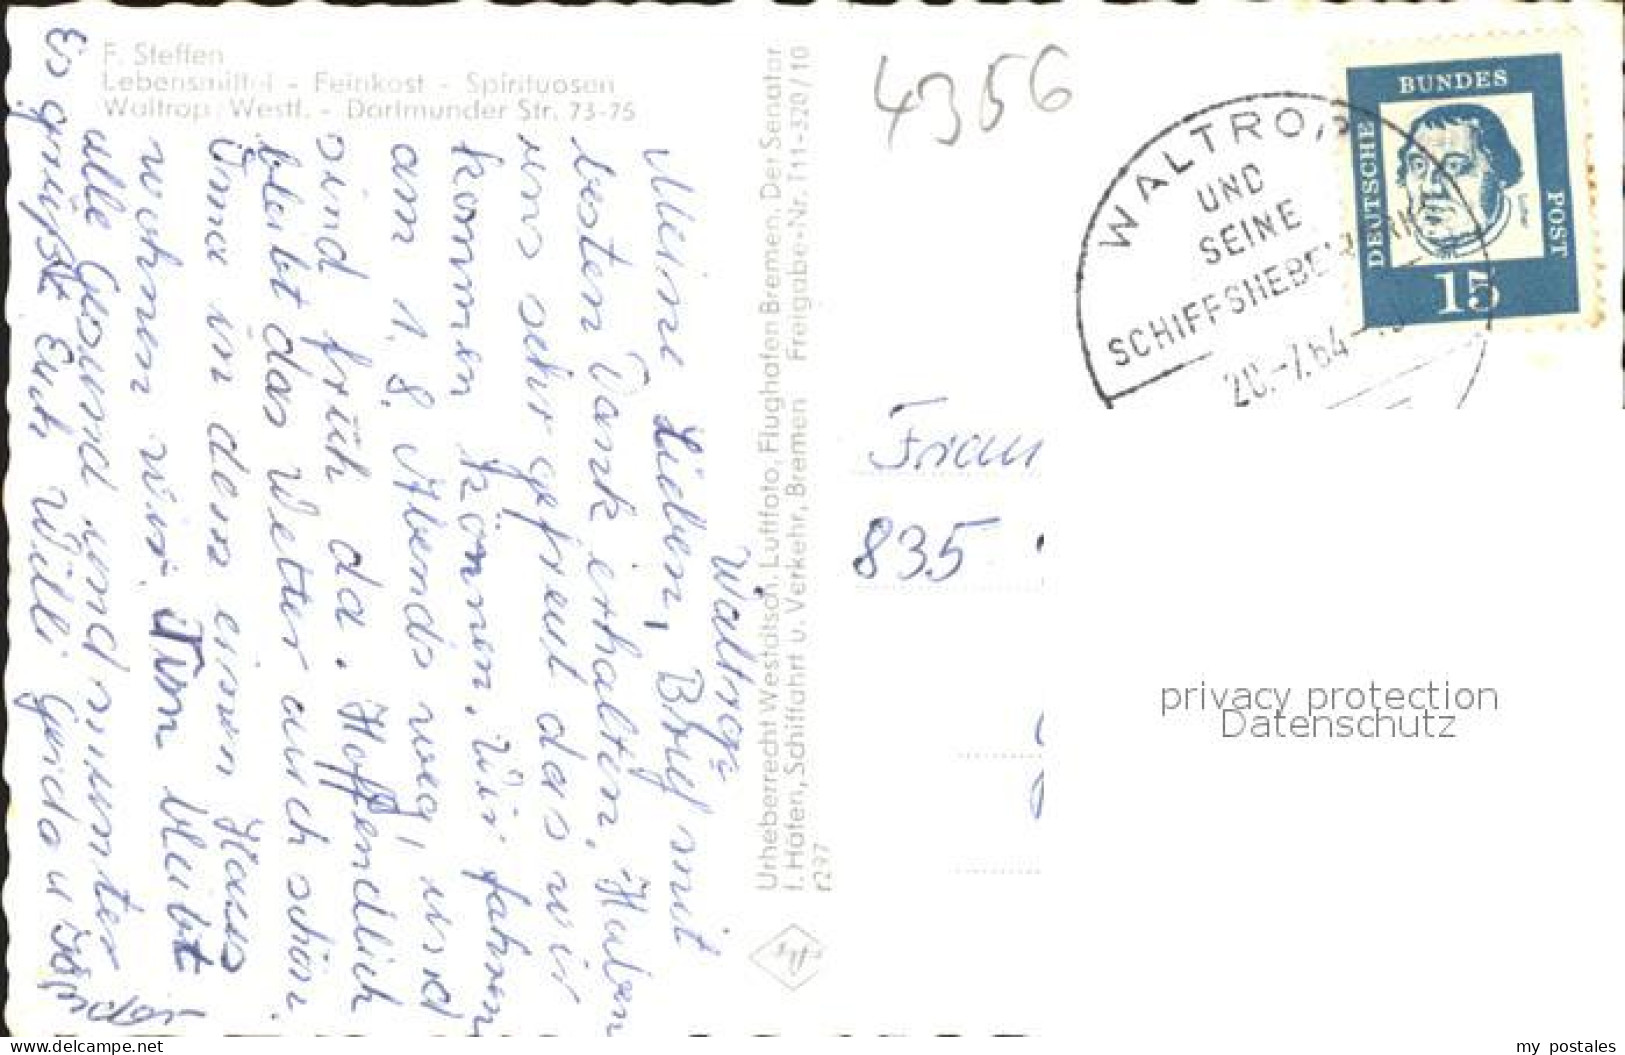 F. Steffen
Lebensmittel - Feinkost - Spirituosen
Waltrop/Westf. - Dortmunder Str. 73-75
Waltrop
Meine Lieben, Brief mit
besten Dank erhalten. Haben
uns sehr gefreut das wir
kommen können. Wir fahren
am 1. 8. Abends weg, und
sind früh da. Hoffendlich
bleibt das Wetter auch schön.
Oma in dem einen Haus
wohnen wir. Nun bleibt
alle Gesund und munter
Es grüßt Euch Willi Gerda u
Urheberrecht Westdtsch. Luftfoto, Flughafen Bremen. Der Senator
f. Häfen, Schiffahrt u. Verkehr, Bremen Freigabe-Nr. T11-320/10
r297
4356
WALTROP
UND
SEINE
SCHIFFSHEBEWERKE
20.-7.64
BUNDES
DEUTSCHE
POST
15
Frau
835
privacy protection
Datenschutz
www.delcampe.net
my postales